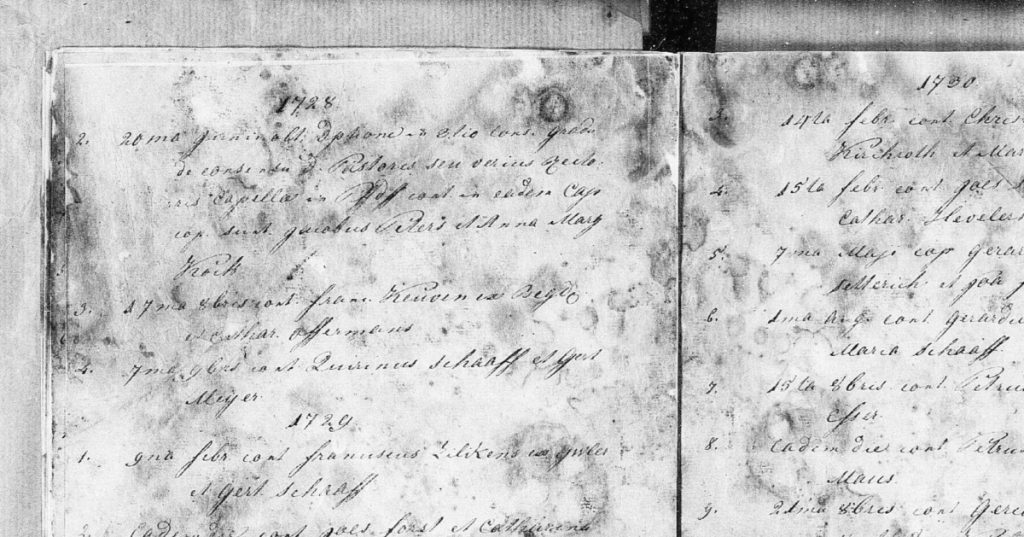 1728
2. 20ma Junii obt. in 2tio cons. gradu
de consensu D. Pastoris seu verius Recto
ris Capellae in cont in eadem Cap
cop. sunt Jacobus Peters et Anna Marg
Kock
3. 17ma 8bris cont. franc. Keuven ex
et Cathar. Offermans
4. 7ma 9bris cont Quirinus Schaaff et Gert
Meyer
1729
1. 9na febr cont franciscus ex
et Gert Schaaff
2. Eadem die cont goes. forst et Catharina
1730
3. 14ta febr. cont Chris
Kirchroth et Mar
4. 15ta febr cont goes
Cathar.
5. 7ma Maji cop Gerar
Setterich et
6. 1ma Aug. cont Gerardu
Maria Schaaff
7. 15ta 8bris cont Petru
Esser
8. Eadem die cont Petru
Maus
9. 21ma 8bris cont Gera